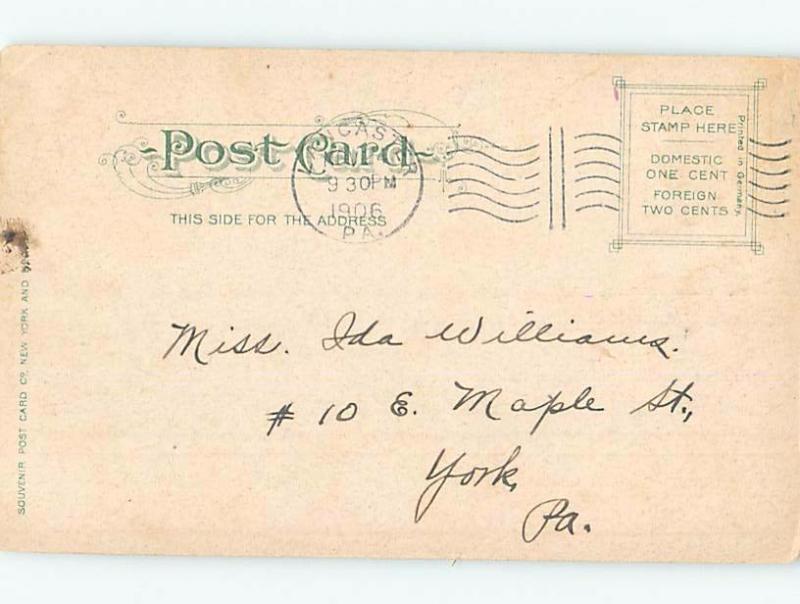 Post Card
THIS SIDE FOR THE ADDRESS
LANCASTER
9 30 PM
1906
PA.
PLACE
STAMP HERE
DOMESTIC
ONE CENT
FOREIGN
TWO CENTS
Printed in Germany.
SOUVENIR POST CARD Cº. NEW YORK AND
Miss. Ida Williams.
# 10 E. Maple St.,
York,
Pa.